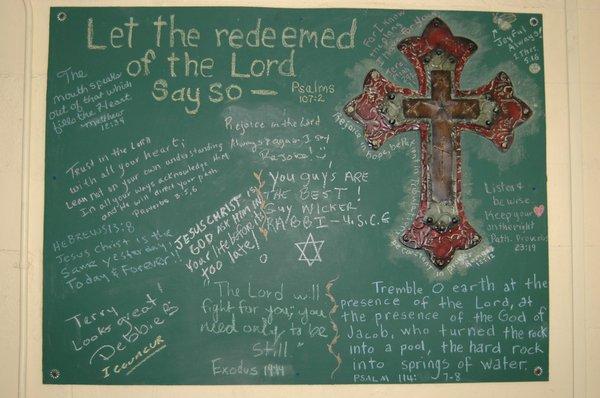 Let the redeemed
of the Lord
Say So —
Psalms
107:2
The
mouth speaks
out of that which
fills the Heart
Matthew
12:34
For I Know
Joyful
Always!
1 Thes.
5:16
Rejoice in hope
Rejoice in the Lord
Always again, I say
Rejoice!
Trust in the Lord
with all your heart;
Lean not on your own understanding
In all your ways acknowledge Him
and He will direct your path
Proverbs 3:5,6
YOU GUYS ARE
THE BEST!
GUY WICKER
RABBI - U.S.C.G
JESUS CHRIST IS
GOD ASK HIM IN
Your life before it's
too late!
Listen &
be wise
Keep your
on the right
Path. Proverbs
23:19
HEBREWS 13:8
Jesus Christ is the
Same Yesterday,
Today & Forever!!
Terry
Looks great!
Debbie
I CONCUR
The Lord will
fight for you; you
need only to be
still."
Exodus 14:14
Tremble O earth at the
presence of the Lord, at
the presence of the God of
Jacob, who turned the rock
into a pool, the hard rock
into springs of water.
PSALM 114: 7-8